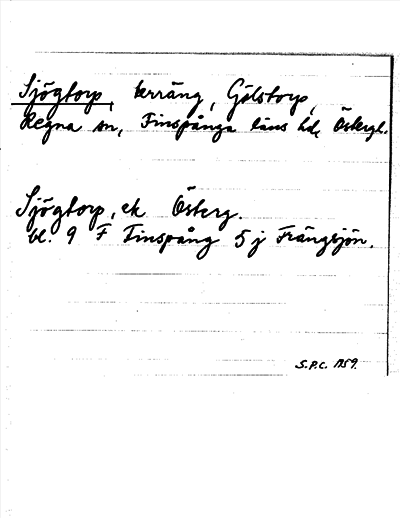 Sjögtorp, terräng, Gölstorp,
Regna sn, Finspånga läns hd, Östergl.
Sjögtorp, ek Österg.
bl. 9 F Finspång 5 j Frängsjön.
S.P.C. 1959.